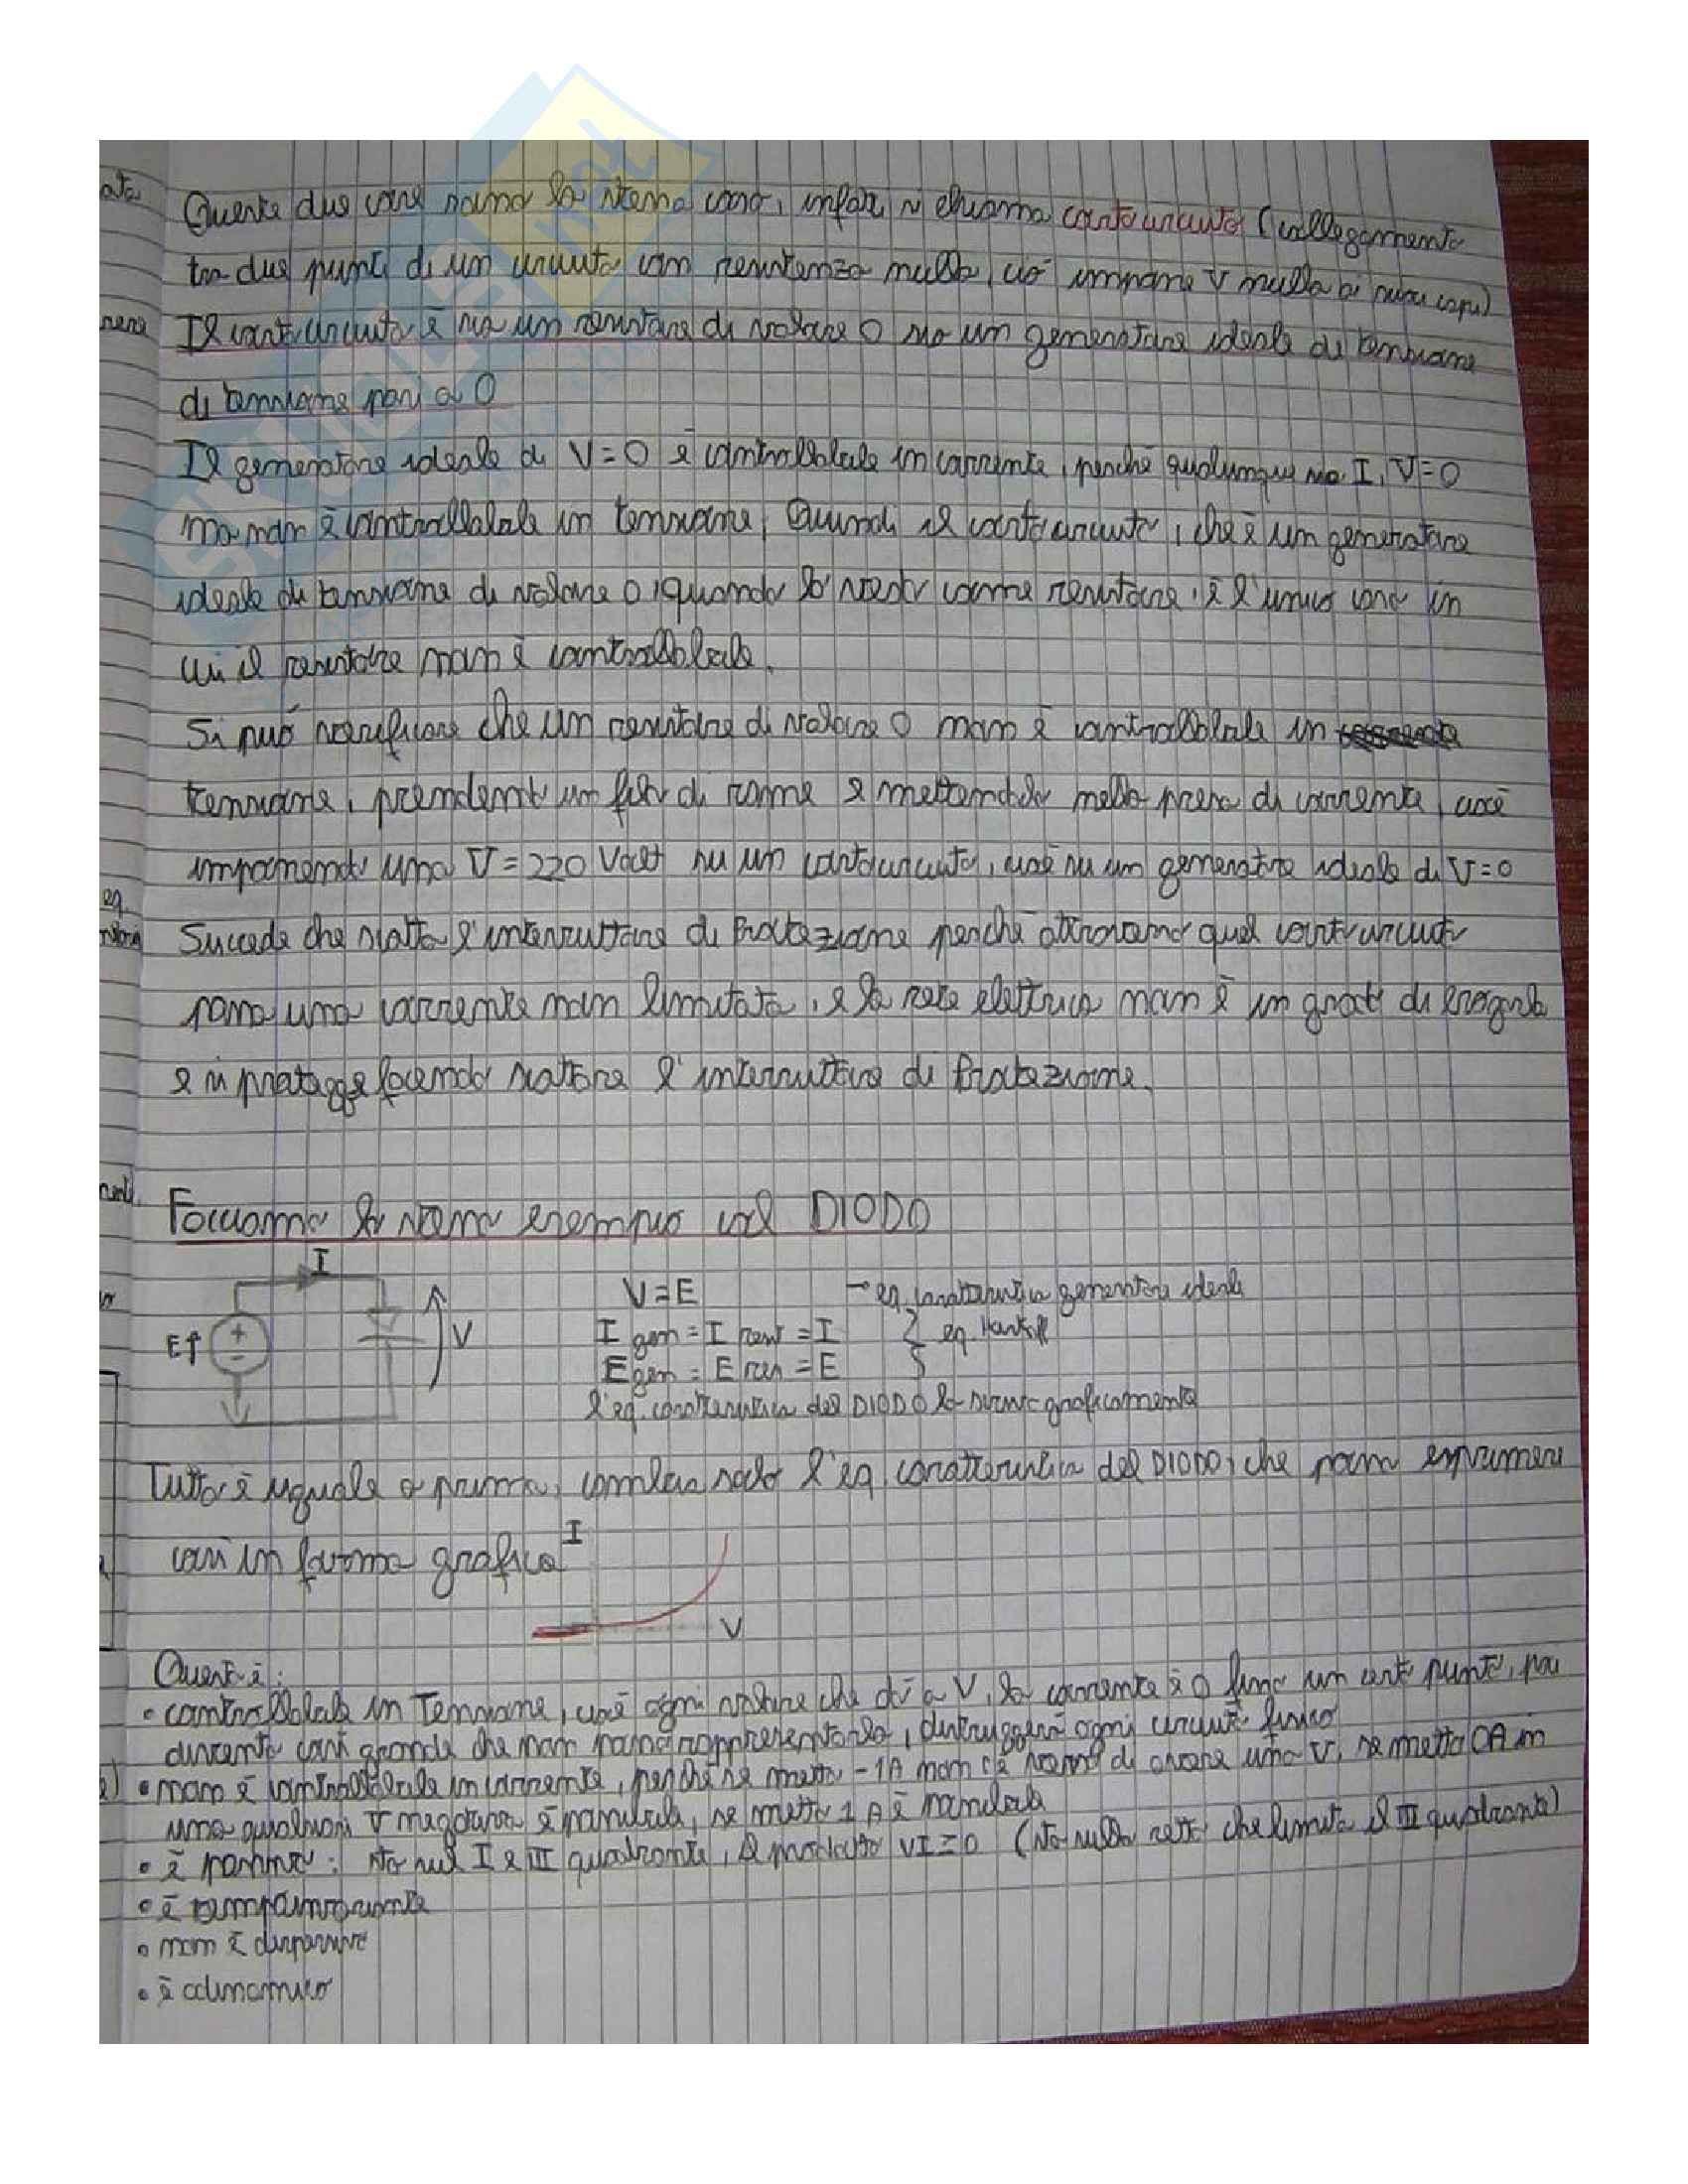 Queste due cose sono la stessa cosa, infatti si chiama cortocircuito (collegamento
tra due punti di un circuito con resistenza nulla, ciò impone V nulla ai suoi capi)
Il cortocircuito è sia un resistore di valore 0 sia un generatore ideale di tensione
di tensione pari a 0
Il generatore ideale di V=0 è controllabile in corrente, perché qualunque sia I, V=0
ma non è controllabile in tensione. Quindi il cortocircuito, che è un generatore
ideale di tensione di valore 0, quando lo vesto come resistore, è l'unico caso in
cui il resistore non è controllabile.
Si può verificare che un resistore di valore 0 non è controllabile in
tensione, prendendo un filo di rame e mettendolo nella presa di corrente, cioè
imponendo una V=220 Volt su un cortocircuito, cioè su un generatore ideale di V=0
Succede che scatta l'interruttore di Protezione perché attraverso quel cortocircuito
passa una corrente non limitata, e la rete elettrica non è in grado di erogarla
e si protegge facendo scattare l'interruttore di Protezione.
Facciamo lo stesso esempio col DIODO
I
E↑
+
-
V
V=E → eq. caratteristica generatore ideale
I gen = I resist = I } eq. Kirchhoff
E gen = E res = E
l'eq. caratteristica del DIODO la scrivo graficamente
Tutto è uguale a prima, cambia solo l'eq. caratteristica del DIODO, che posso esprimere
così in forma grafica
I
V
Questo è:
• controllabile in Tensione, cioè ogni valore che dò a V, la corrente è 0 fino un certo punto, poi
diventa così grande che non posso rappresentarla, distruggerà ogni circuito fisico
• non è controllabile in corrente, perché se metto -1A non c'è verso di avere una V, se metto 0A in
una qualsiasi V negativa è possibile, se metto 1 A è possibile
• è passivo: sta nel I e III quadrante, il prodotto VI≥0 (sta sulla retta che limita il III quadrante)
• è tempoinvariante
• non è dispersivo
• è adinamico